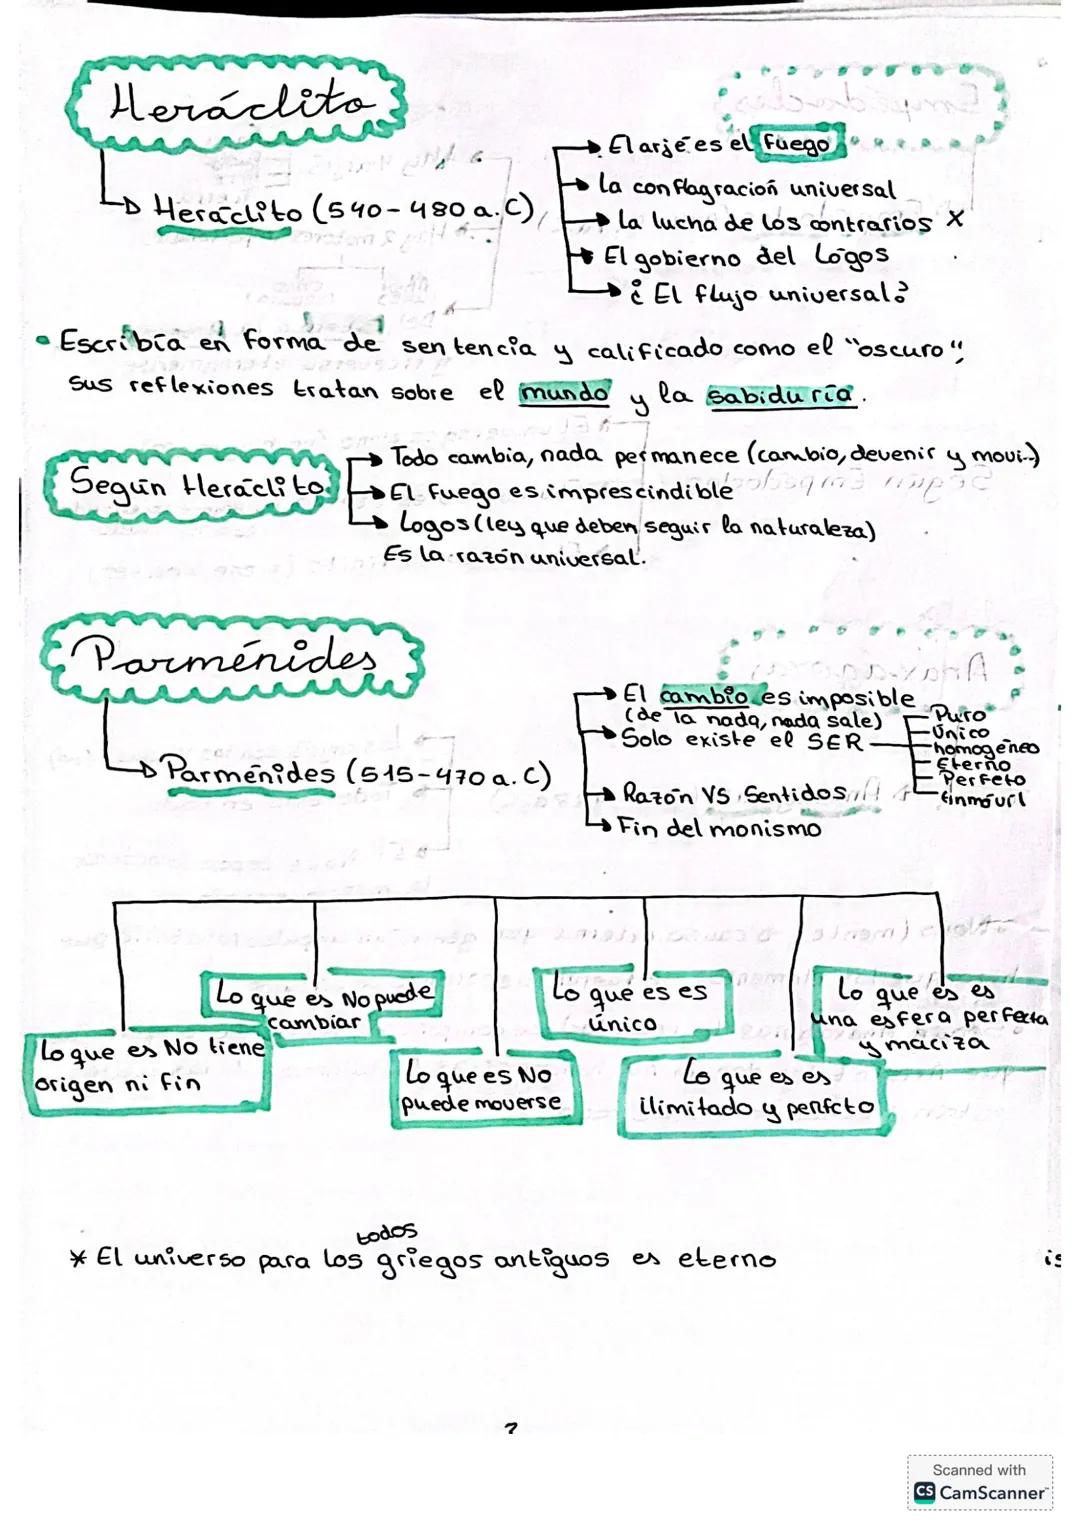 Heráclito
Heráclito (540-480 a.C)
El arjé es el fuego
la conflagración universal
la lucha de los contrarios X
El gobierno del Logos
¿ El flujo universal?
• Escribía en forma de sentencia y calificado como el "oscuro",
sus reflexiones tratan sobre el mundo y la sabiduría.
Según Heráclito
Todo cambia, nada permanece (cambio, devenir y movi..)
El fuego es imprescindible
Logos (ley que deben seguir la naturaleza)
Es la razón universal.
Parménides
Parménides (515-470 a.C)
El cambio es imposible
(de la nada, nada sale)
Solo existe el SER
Puro
Único
homogéneo
Eterno
Perfeto
Razón VS Sentidos
Fin del monismo
Lo que es NO tiene
origen ni fin
Lo que es No puede
cambiar
Lo que es NO
puede moverse
Lo que es es
único
Lo que es es
ilimitado y perfcto
Lo que es es
una esfera perfecta
y maciza
todos
* El universo para los griegos antiguos es eterno
is
Scanned with
CS CamScanner